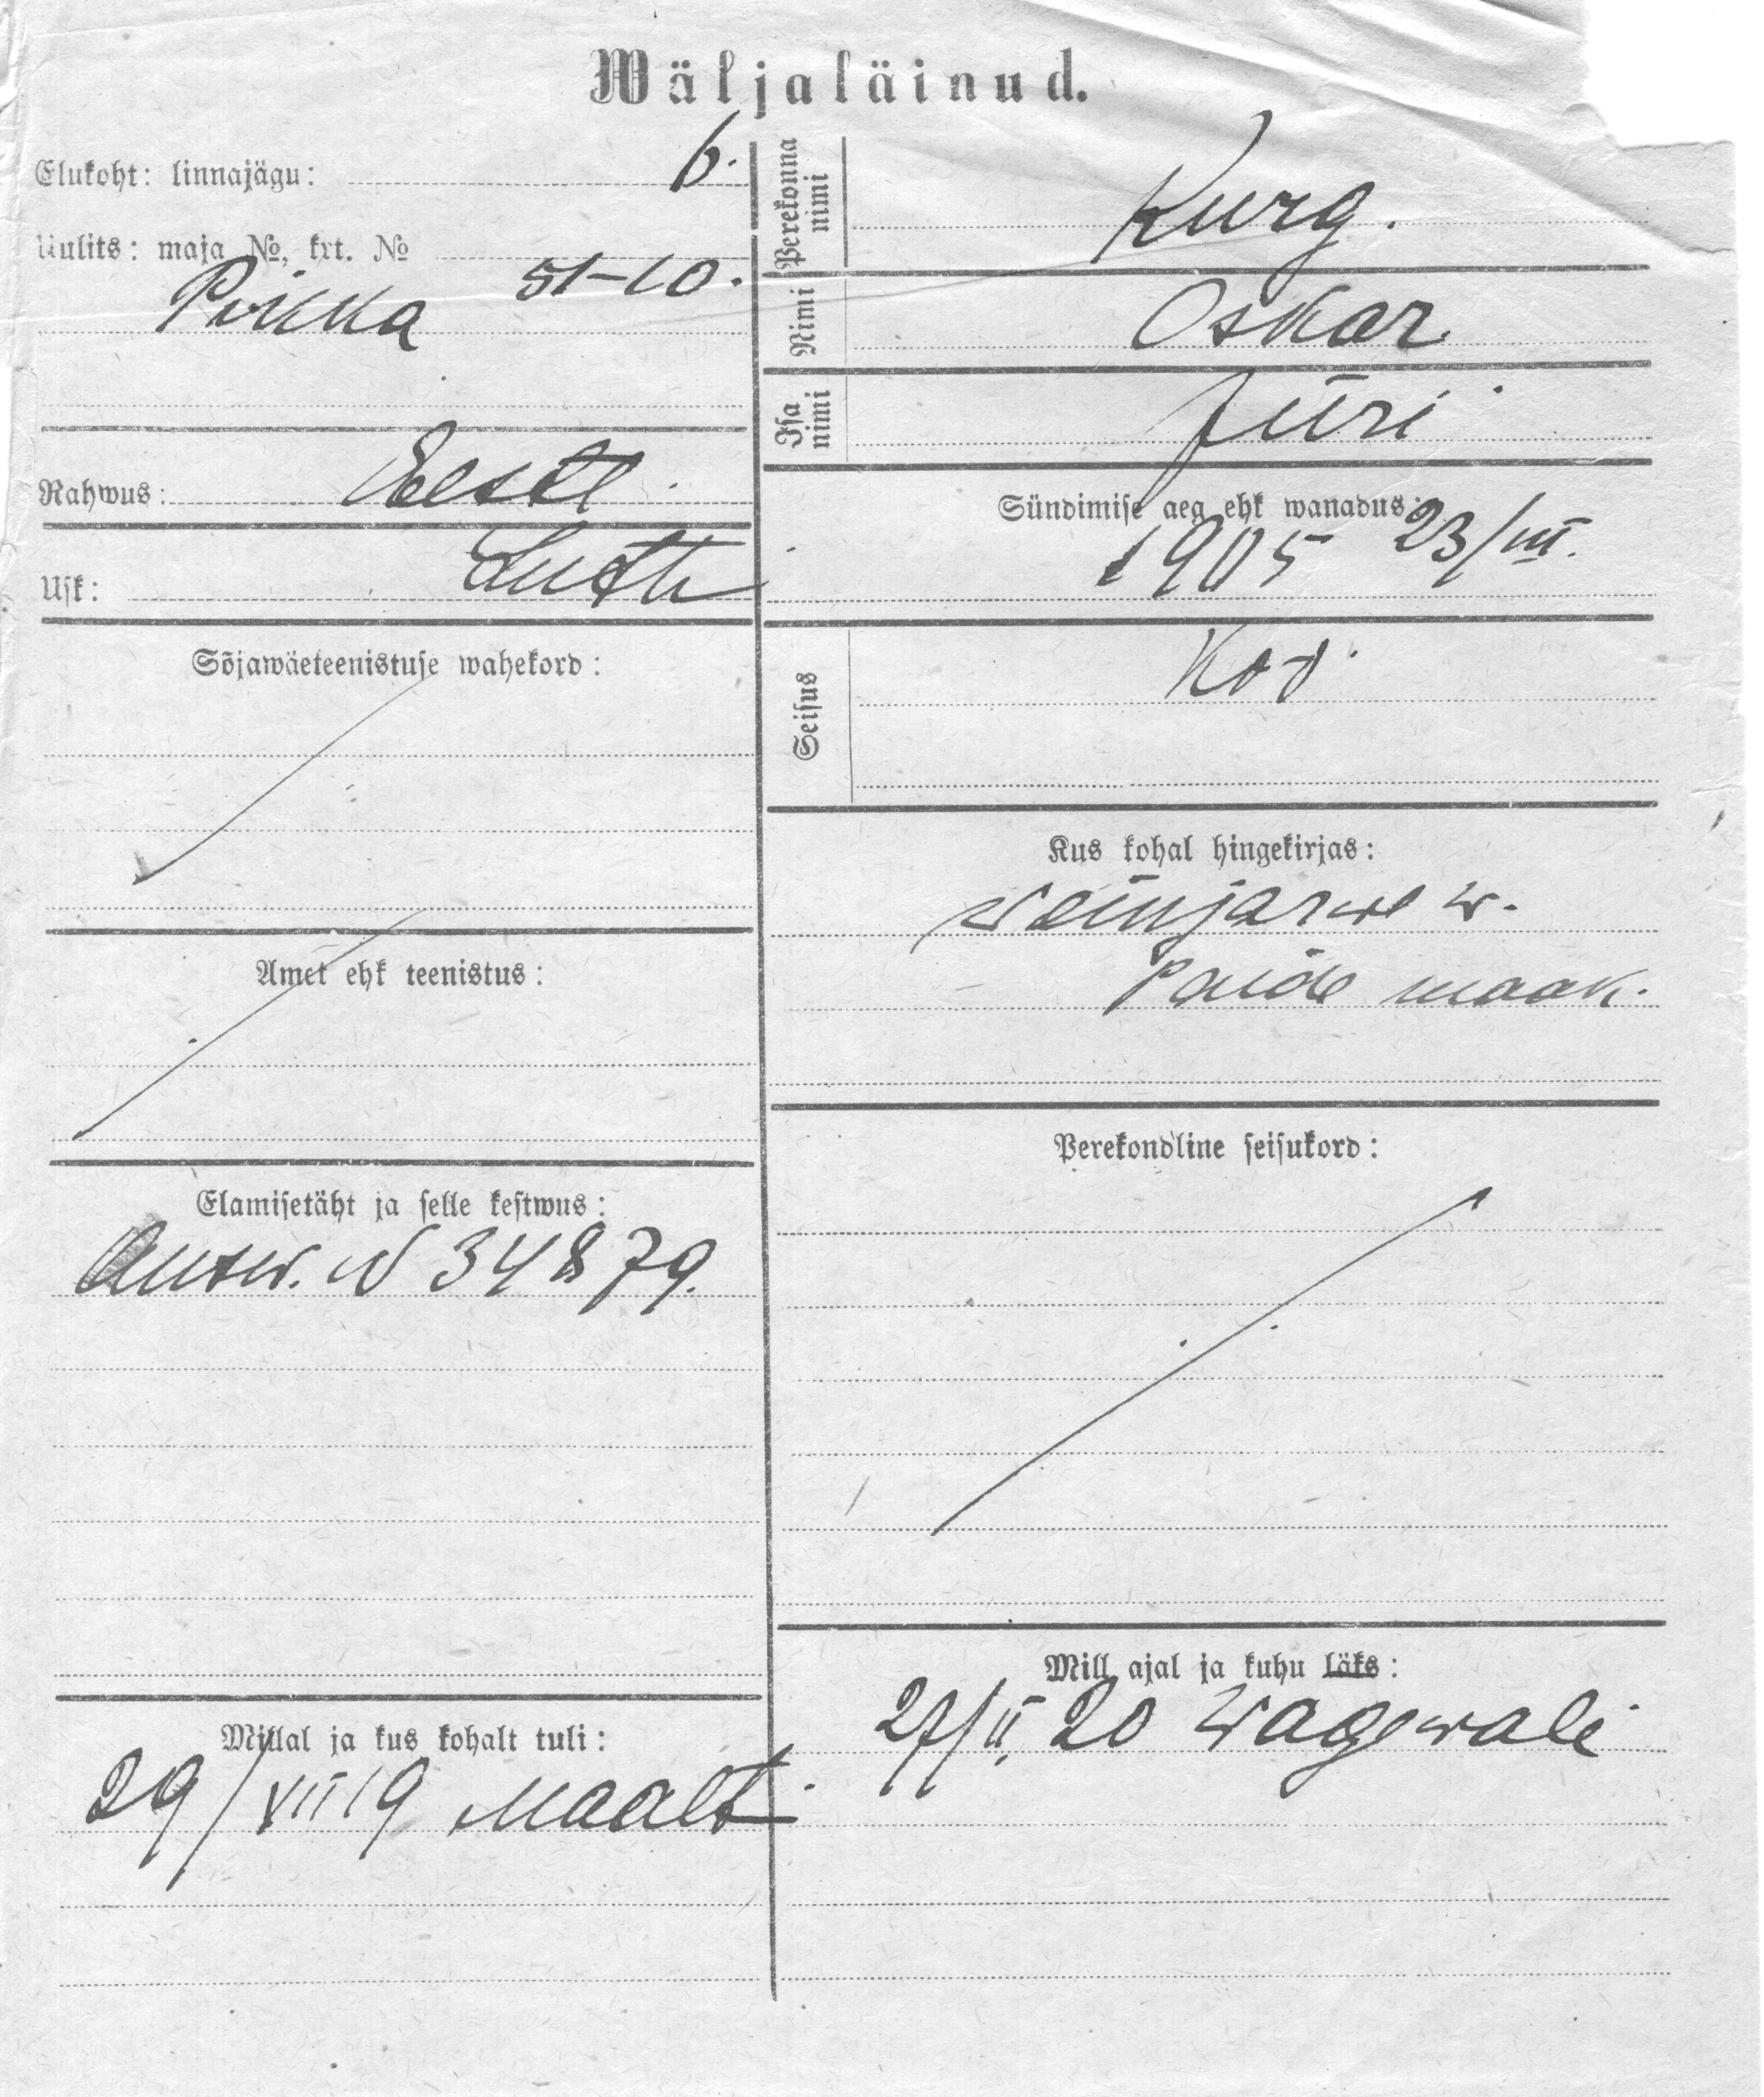 Wäljaläinud.
Elukoht: linnajägu: 6.
Uulits: maja №, krt. №
Pikka 51-10.
Rahwus: Eestl.
Usk: Luth
Sõjawäeteenistuse wahekord:
Amet ehk teenistus:
Elamisetäht ja selle kestwus:
N 34879.
Millal ja kus kohalt tuli:
29/VII 19 Maalt.
Perekonna nimi Kurg.
Nimi Oskar
Isa nimi Jüri
Sündimise aeg ehk wanadus: 23/III.
1905
Seisus
Kus kohal hingekirjas:
Weinjärwe w.
Paide maak.
Perekondline seisukord:
Mill ajal ja kuhu läks:
27/II 20 Wagewale